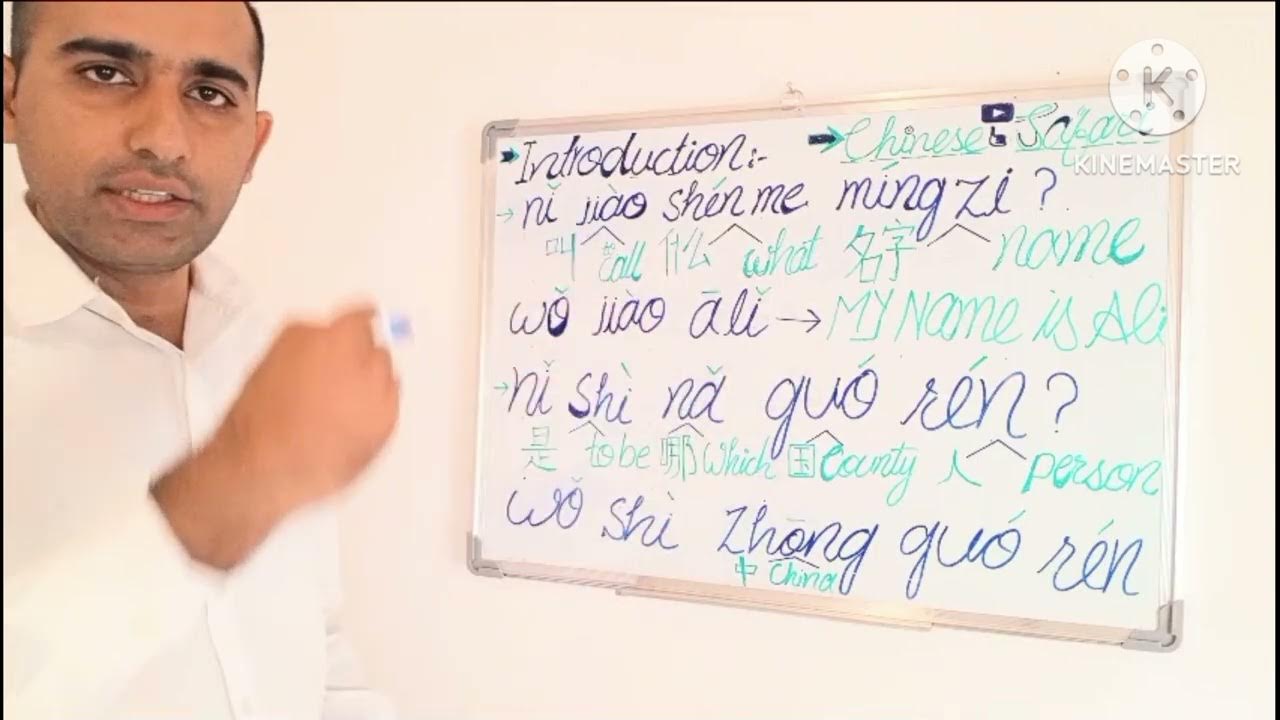 Introduction:-
→ Chinese Safari
K
KINEMASTER
→ nǐ jiào shén me míng zi ?
叫 call 什么 what 名字 name
wǒ jiào ālǐ → MY Name is Ali
→ nǐ shì nǎ guó rén ?
是 to be 哪 which 国 County 人 person
wǒ shì zhōng guó rén
中 China